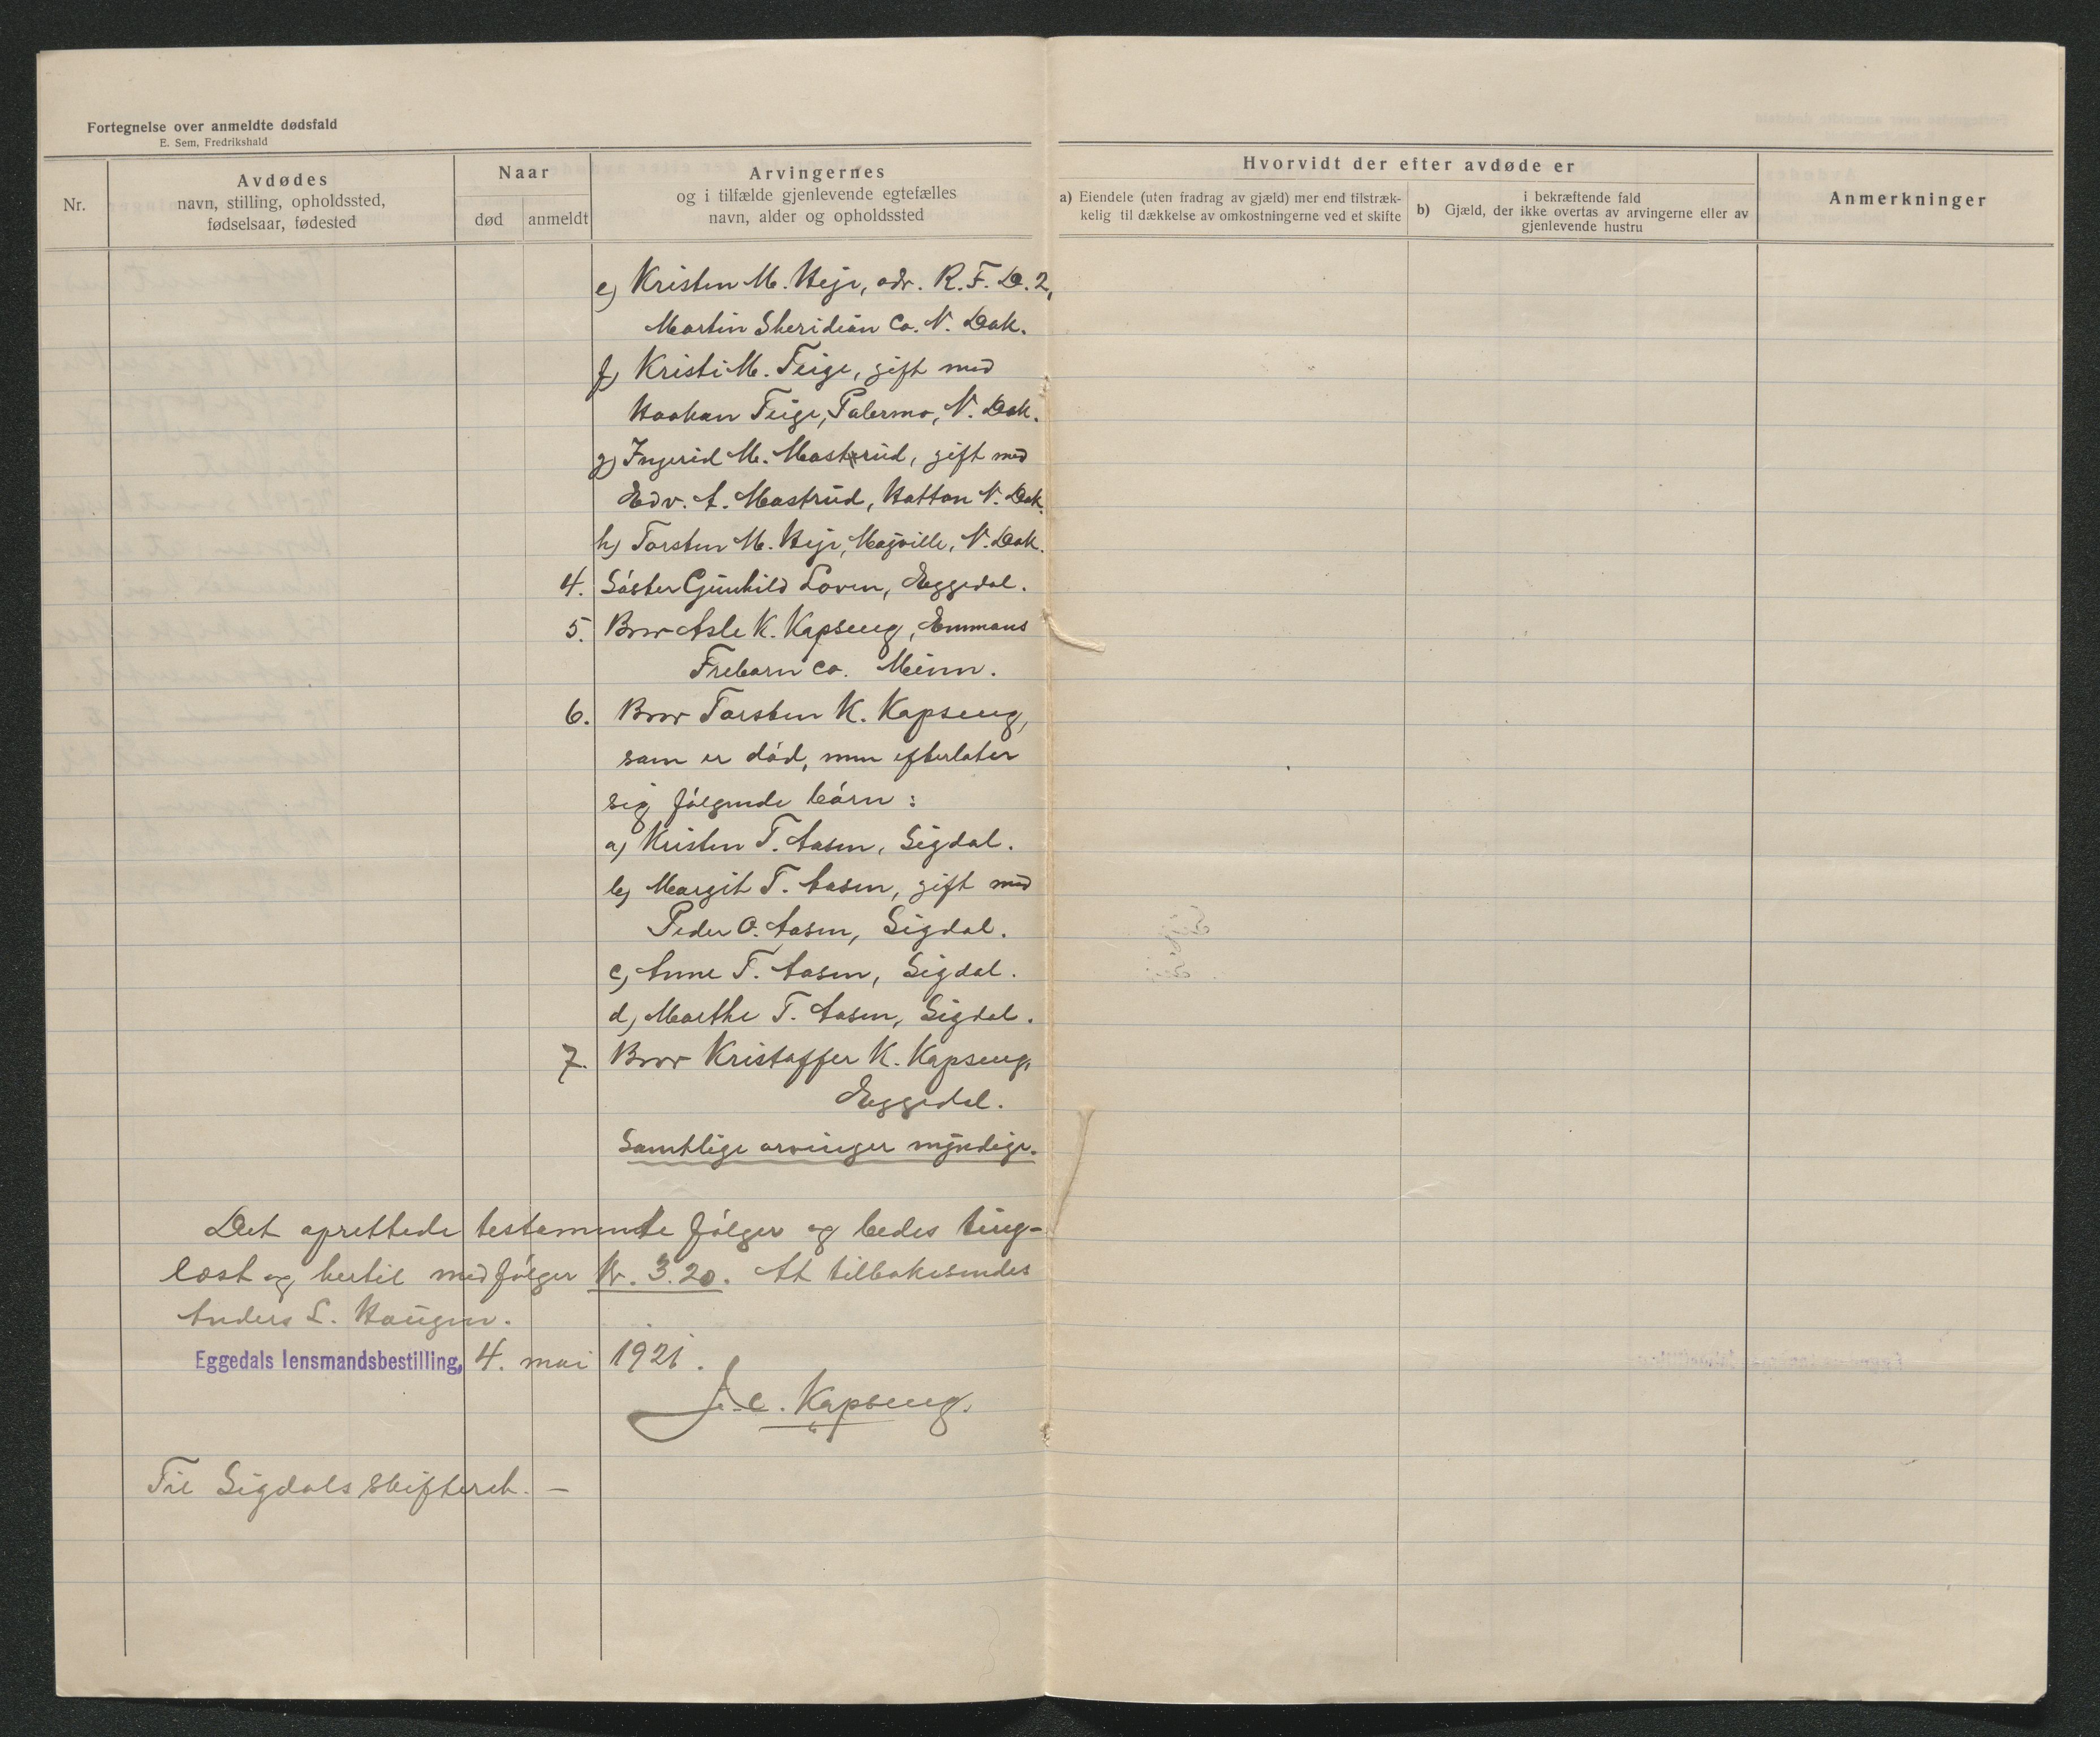 Fortegnelse over anmeldte dødsfald
E. Sem, Fredrikshald
Nr.
Avdødes
navn, stilling, opholdssted,
fødselsaar, fødested
Naar
død
anmeldt
Arvingernes
og i tilfælde gjenlevende egtefælles
navn, alder og opholdssted
Hvorvidt der efter avdøde er
a) Eiendele (uten fradrag av gjæld) mer end tilstræk-
kelig til dækkelse av omkostningerne ved et skifte
i bekræftende fald
b) Gjæld, der ikke overtas av arvingerne eller av
gjenlevende hustru
Anmerkninger
e) Kristen M. Heje, adr. R. F. D. 2,
Martin Sheridian Co. N. Dak.
f) Kristi M. Teige, gift med
Haakan Teige, Palermo, N. Dak.
g) Ingerid M. Mastrud, gift med
Edv. A. Mastrud, Hatton N. Dak.
h) Torsten M. Heje, Mayville, N. Dak.
4. Søster Gunhild Loven, Eggedal.
5. Bror Asle K. Kapseng, Emmons
Freborn Co. Minn.
6. Bror Torsten K. Kapseng,
som er død, men efterlater
sig følgende børn:
a) Kristen T. Aasen, Sigdal.
b) Margit T. Aasen, gift med
Peder O. Aasen, Sigdal.
c) Anne T. Aasen, Sigdal.
d) Marthe T. Aasen, Sigdal.
7. Bror Kristoffer K. Kapseng,
Eggedal.
Samtlige arvinger myndige.
Det oprettede testamente følger og bedes ting-
læst og hertil medfølger Kr. 3.20. At tilbakesendes
Anders L. Haugen.
Eggedals lensmandsbestilling, 4. mai 1921.
J. C. Kapseng.
Til Sigdals skifteret. –